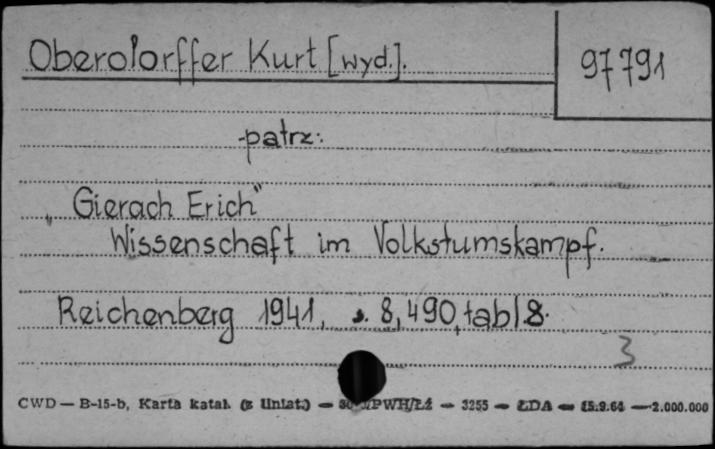 Oberdorffer Kurt [wyd.].
97791
-patrz:
„Gierach Erich"
Wissenschaft im Volkstumskampf.
Reichenberg 1941, s. 8, 490, tabl. 8.
3
CWD — B-15-b, Karta katal. (z liniat.) — /PWH/Łź — 3255 — ŁDA — 15.9.64 — 2.000.000